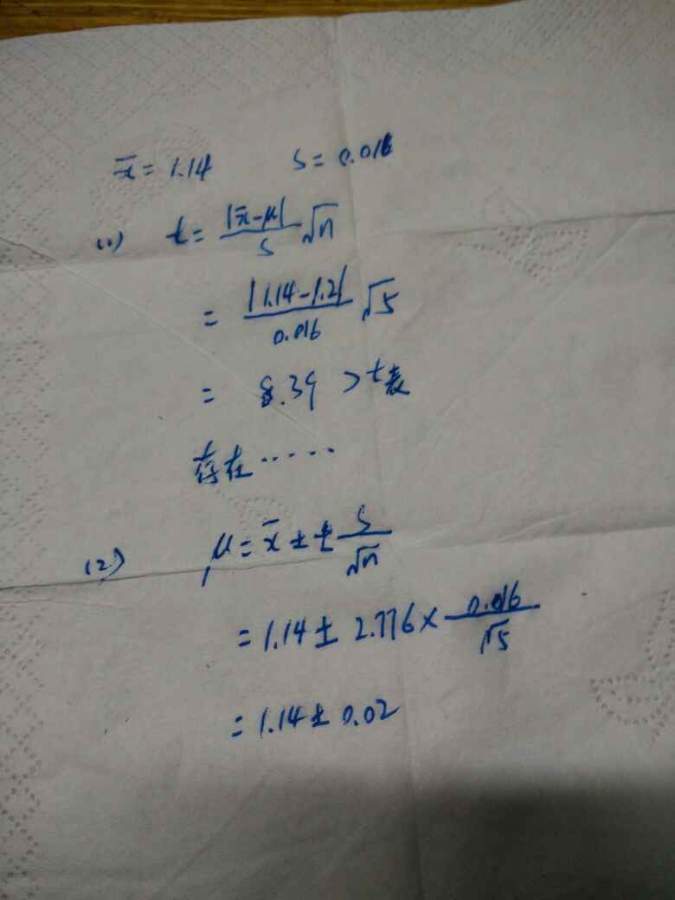 x̄ = 1.14 S = 0.016
(1) t = |x̄-μ|/S √n
= |1.14-1.2|/0.016 √5
= 8.39 > t表
存在·····
(2) μ = x̄ ± t S/√n
= 1.14 ± 2.776 × 0.016/√5
= 1.14 ± 0.02